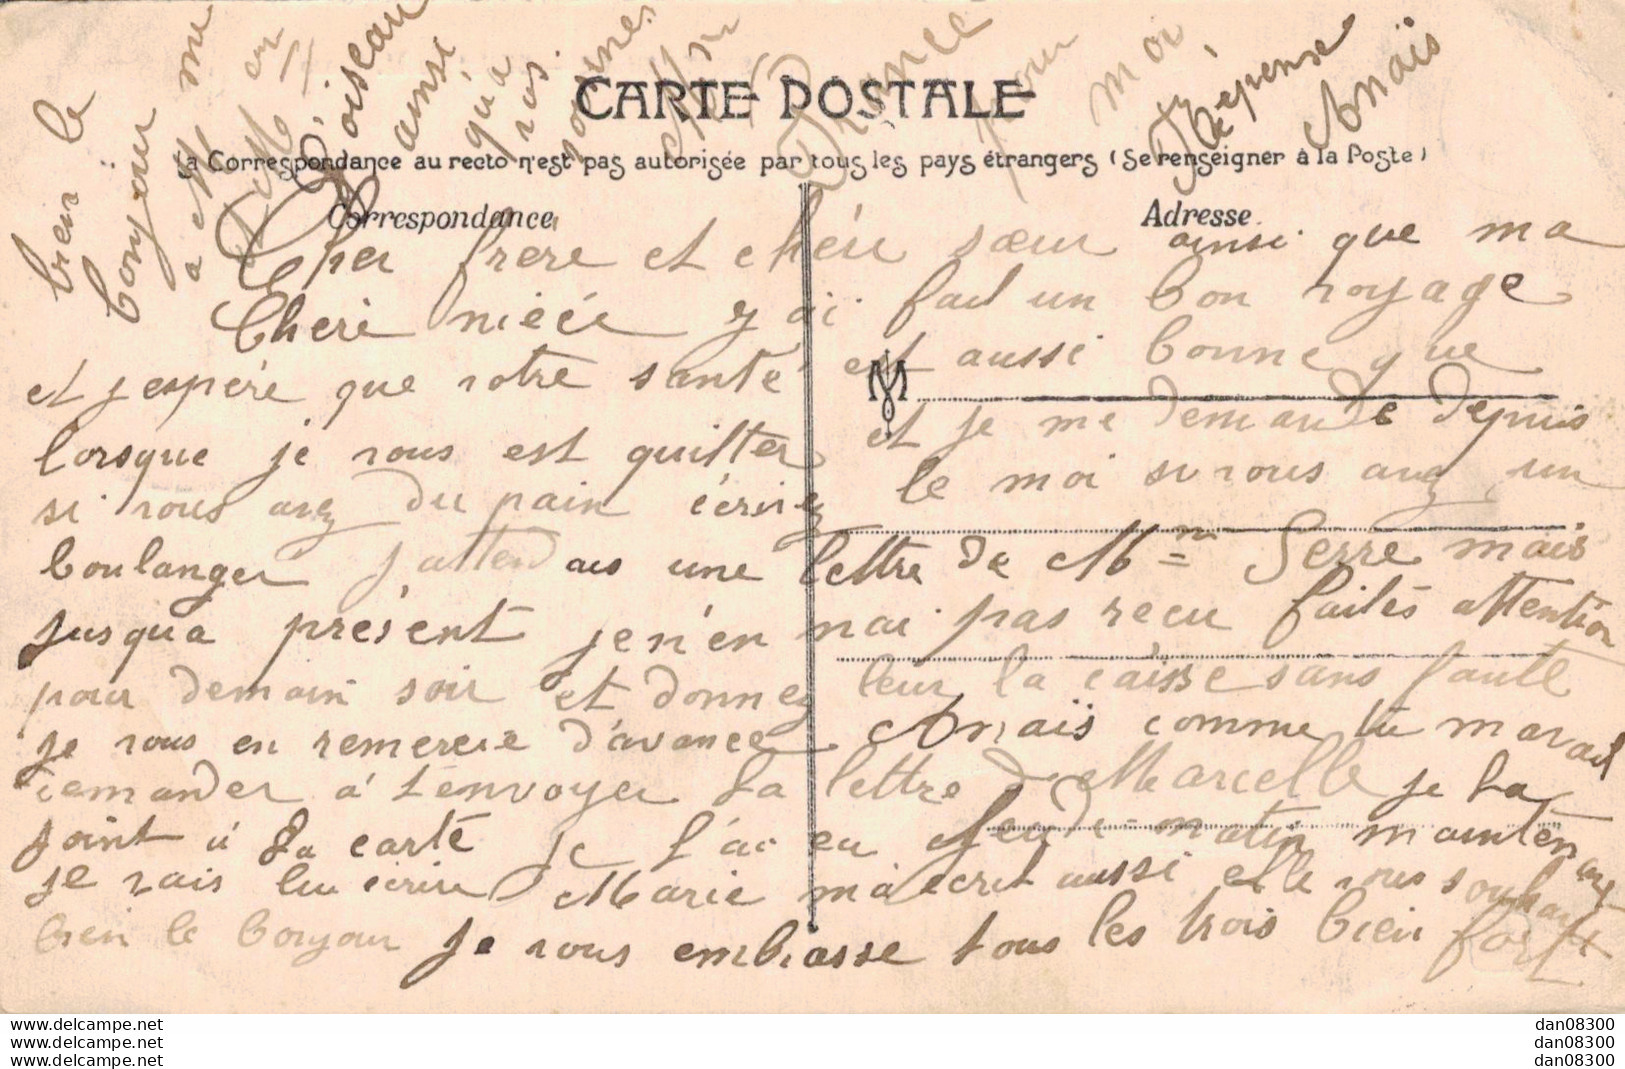 CARTE POSTALE
La Correspondance au recto n'est pas autorisée par tous les pays étrangers (Se renseigner à la Poste)
Correspondance
Adresse
bien le
bonjour
a M me
et M er
Loiseau
ainsi
qu'a
vos
France
pour
moi
Réponse
Anaïs
Cher frere et chéri sœur ainsi que ma
Cheri niéce j ai fait un bon voyage
et j espére que votre santé est aussi bonne que
lorsque je vous est quitter et je me demande depuis
si vous avez du pain écrivez le moi si vous avez un
boulanger j attendais une lettre de Mm Serre mais
jusqua présent je n'en n'ai pas recu faités attention
pour demain soir et donnez leur la caisse sans faute
je vous en remercie d'avance Anaïs comme tu mavait
demander a t envoyer la lettre d Marcelle je la
joint a la carté je l'ai eu Jeudi matin maintenant
je vais lui écrire Marie ma ecrit aussi elle vous souhaite
bien le bonjour je vous embrasse tous les trois bien fort
M
www.delcampe.net
www.delcampe.net
www.delcampe.net
dan08300
dan08300
dan08300